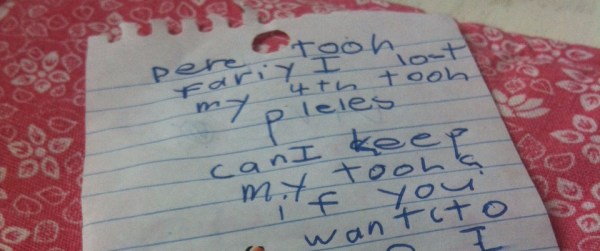 pere tooh
Fariy I lost
my 4th tooh
pleles
can I keep
my tooh
if you
want to
I